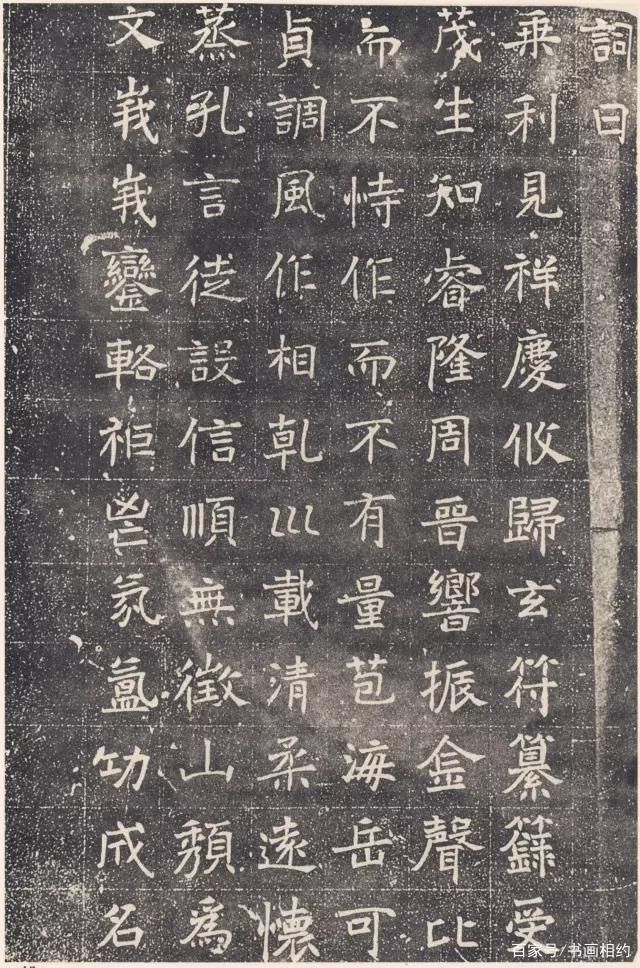 詞曰
乗利見祥慶攸歸玄符纂籙受
茂生知睿隆周晉響振金聲比
而不恃作而不有量苞海岳可
貞調風作相乹巛載清柔遠懐
蒸孔言徒設信順無徵山頹為
文峩峩鑾輅秬鬯氛氳功成名
百家号/书画相约